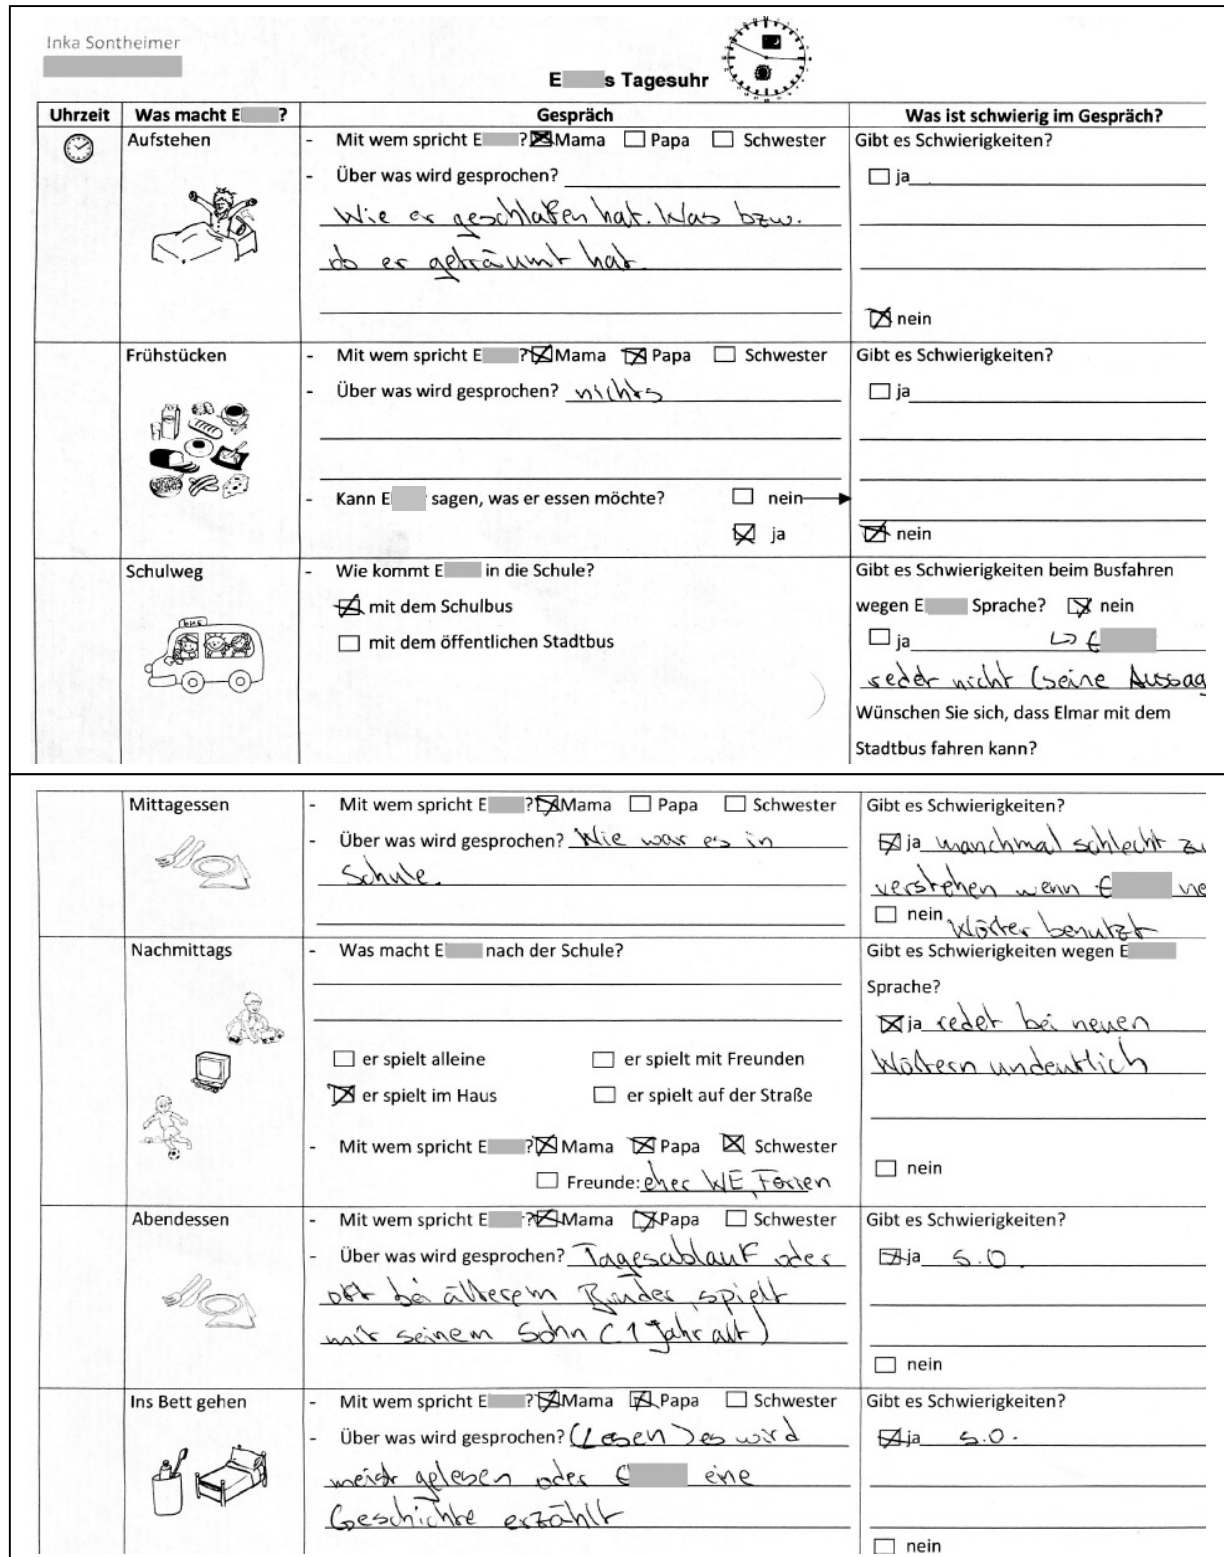 Inka Sontheimer
E s Tagesuhr
Uhrzeit Was macht E ? Gespräch Was ist schwierig im Gespräch?
Aufstehen
- Mit wem spricht E ? Mama Papa Schwester
- Über was wird gesprochen?
Wie er geschlafen hat. Was bzw.
ob er geträumt hat
Gibt es Schwierigkeiten?
ja
nein
Frühstücken
- Mit wem spricht E ? Mama Papa Schwester
- Über was wird gesprochen? nichts
- Kann E sagen, was er essen möchte? nein
ja
Gibt es Schwierigkeiten?
ja
nein
Schulweg
bus
- Wie kommt E in die Schule?
mit dem Schulbus
mit dem öffentlichen Stadtbus
Gibt es Schwierigkeiten beim Busfahren
wegen E Sprache? nein
ja ↳ E
redet nicht (seine Aussag
Wünschen Sie sich, dass Elmar mit dem
Stadtbus fahren kann?
Mittagessen
- Mit wem spricht E ? Mama Papa Schwester
- Über was wird gesprochen? Wie war es in
Schule.
Gibt es Schwierigkeiten?
ja manchmal schlecht zu
verstehen wenn E ne
nein Wörter benutzt
Nachmittags
- Was macht E nach der Schule?
er spielt alleine er spielt mit Freunden
er spielt im Haus er spielt auf der Straße
- Mit wem spricht E ? Mama Papa Schwester
Freunde: eher WE, Ferien
Gibt es Schwierigkeiten wegen E
Sprache?
ja redet bei neuen
Wörtern undeutlich
nein
Abendessen
- Mit wem spricht E ? Mama Papa Schwester
- Über was wird gesprochen? Tagesablauf oder
oft bei älterem Bruder, spielt
mit seinem Sohn (1 Jahr alt)
Gibt es Schwierigkeiten?
ja s.o.
nein
Ins Bett gehen
- Mit wem spricht E ? Mama Papa Schwester
- Über was wird gesprochen? (Lesen) es wird
meist gelesen oder E eine
Geschichte erzählt
Gibt es Schwierigkeiten?
ja s.o.
nein